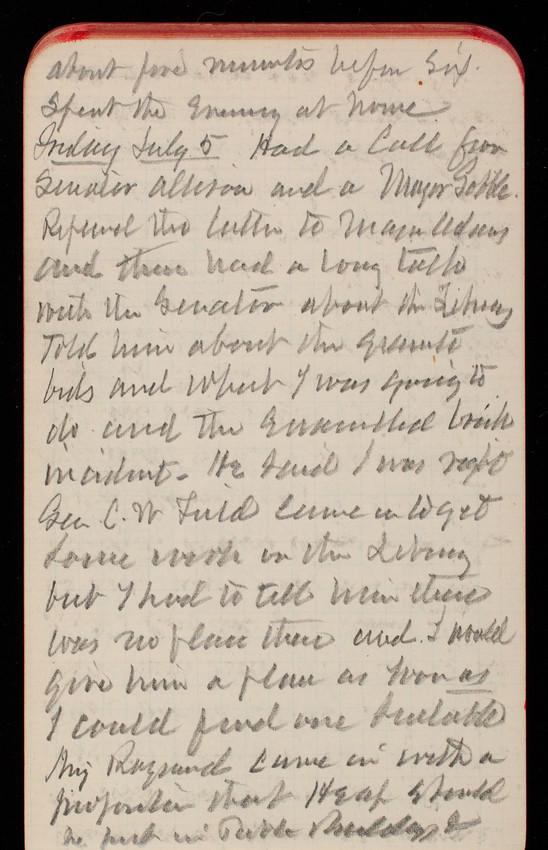 about five minutes before six.
Spent the Evening at home
Friday July 5 Had a Call from
Senator Allison and a Major
Referred the latter to Major Adams
and then had a long talk
with the Senator about the Library
Told him about the granite
bids and what I was going to
do and the Enamelled brick
incident. He said I was right
Gen C. W Field came in to get
some work in the Library
but I had to tell him there
was no place there and I would
give him a place as soon as
I could find one suitable
came in with a
that Heap should
be put in Public Buildings &